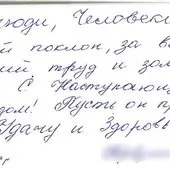 люди, Человеки
й поклон, за в
ний труд и зол
С Наступающ
дом! Пусть он пр
Удачу и Здоровь